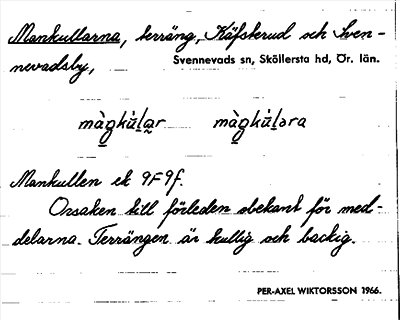 Mankullarna, terräng, Käfskerud och Sven-
nevadsby,
Svennevads sn, Sköllersta hd, Ör. län.
màgkúlar màgkúləra
Mankullen ek 9F9f.
Orsaken till förleden obekant för med-
delarna. Terrängen är kullig och backig.
PER-AXEL WIKTORSSON 1966.